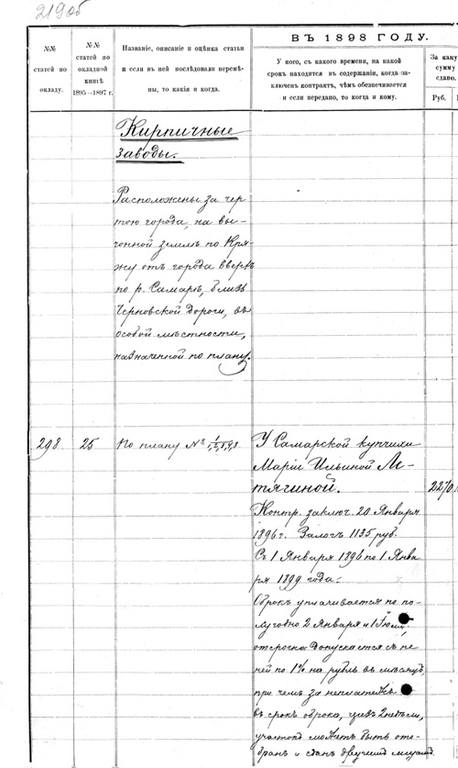 21905
ВЪ 1898 ГОДУ.
№№
статей по
окладу.
№№
статей по
окладной
книгѣ
1895—1897 г.
Названіе, описаніе и оцѣнка статьи
и если въ ней послѣдовали перемѣ-
ны, то какія и когда.
У кого, съ какого времени, на какой
срокъ находится въ содержаніи, когда за-
ключенъ контрактъ, чѣмъ обезпечивается
и если передано, то когда и кому.
За каку
сумму
сдано.
Руб.
Кирпичные
заводы.
Расположены за чер
тою города, на вы-
гонной землѣ по Кря-
жу отъ города вверхъ
по р. Самарѣ, близъ
Черновской дороги, въ
особой мѣстности,
назначенной по плану.
298
25
По плану №
У Самарской купчихи
Маріи Ильиной Ле-
тягиной.
2270
Контр. заключ. 20 Января
1896 г. Залогъ 1135 руб.
Съ 1 Января 1896 по 1 Янва
ря 1899 года.
Оброкъ уплачивается по по-
лугодно 2 Января и 1
отсрочка допускается съ пе
ней по 1% на рубль въ мѣсяцъ,
при чемъ за неплатежъ
въ срокъ оброка,
участокъ можетъ быть ото-
бранъ и сданъ другимъ лицамъ.